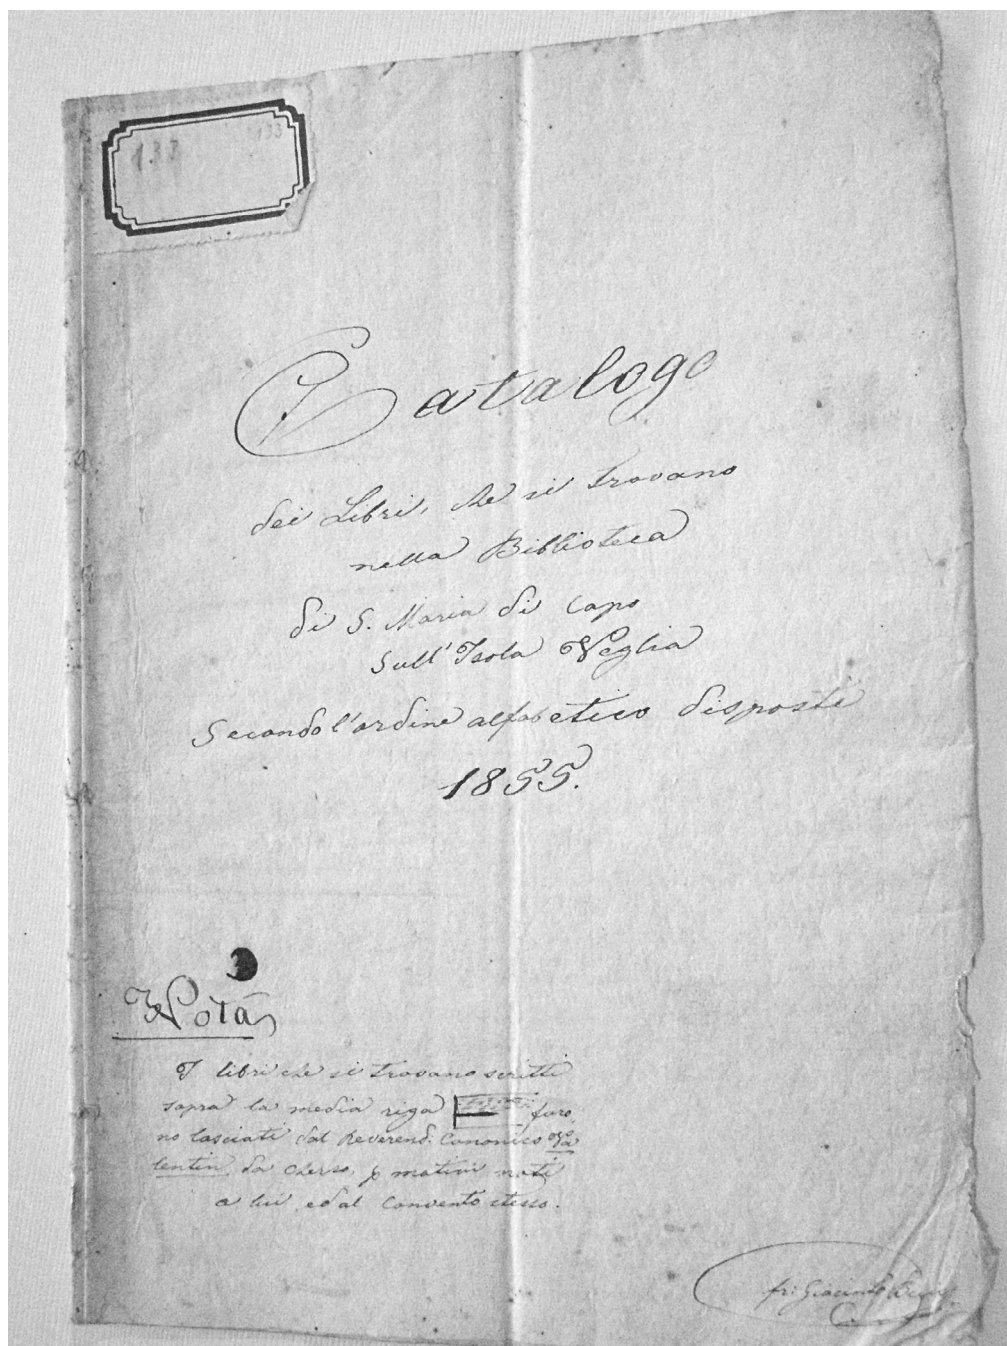 133
133
Catalogo
dei Libri, che si trovano
nella Biblioteca
di S. Maria di Capo
Sull'Isola Veglia
Secondo l'ordine alfabetico disposti
1855.
Nota
I libri che si trovano scritti
sopra la media riga furo
no lasciati dal Reverend. Canonico Va
lentin da Cherso, p motivi noti
a lui ed al Convento stesso.
fr: Giacinto